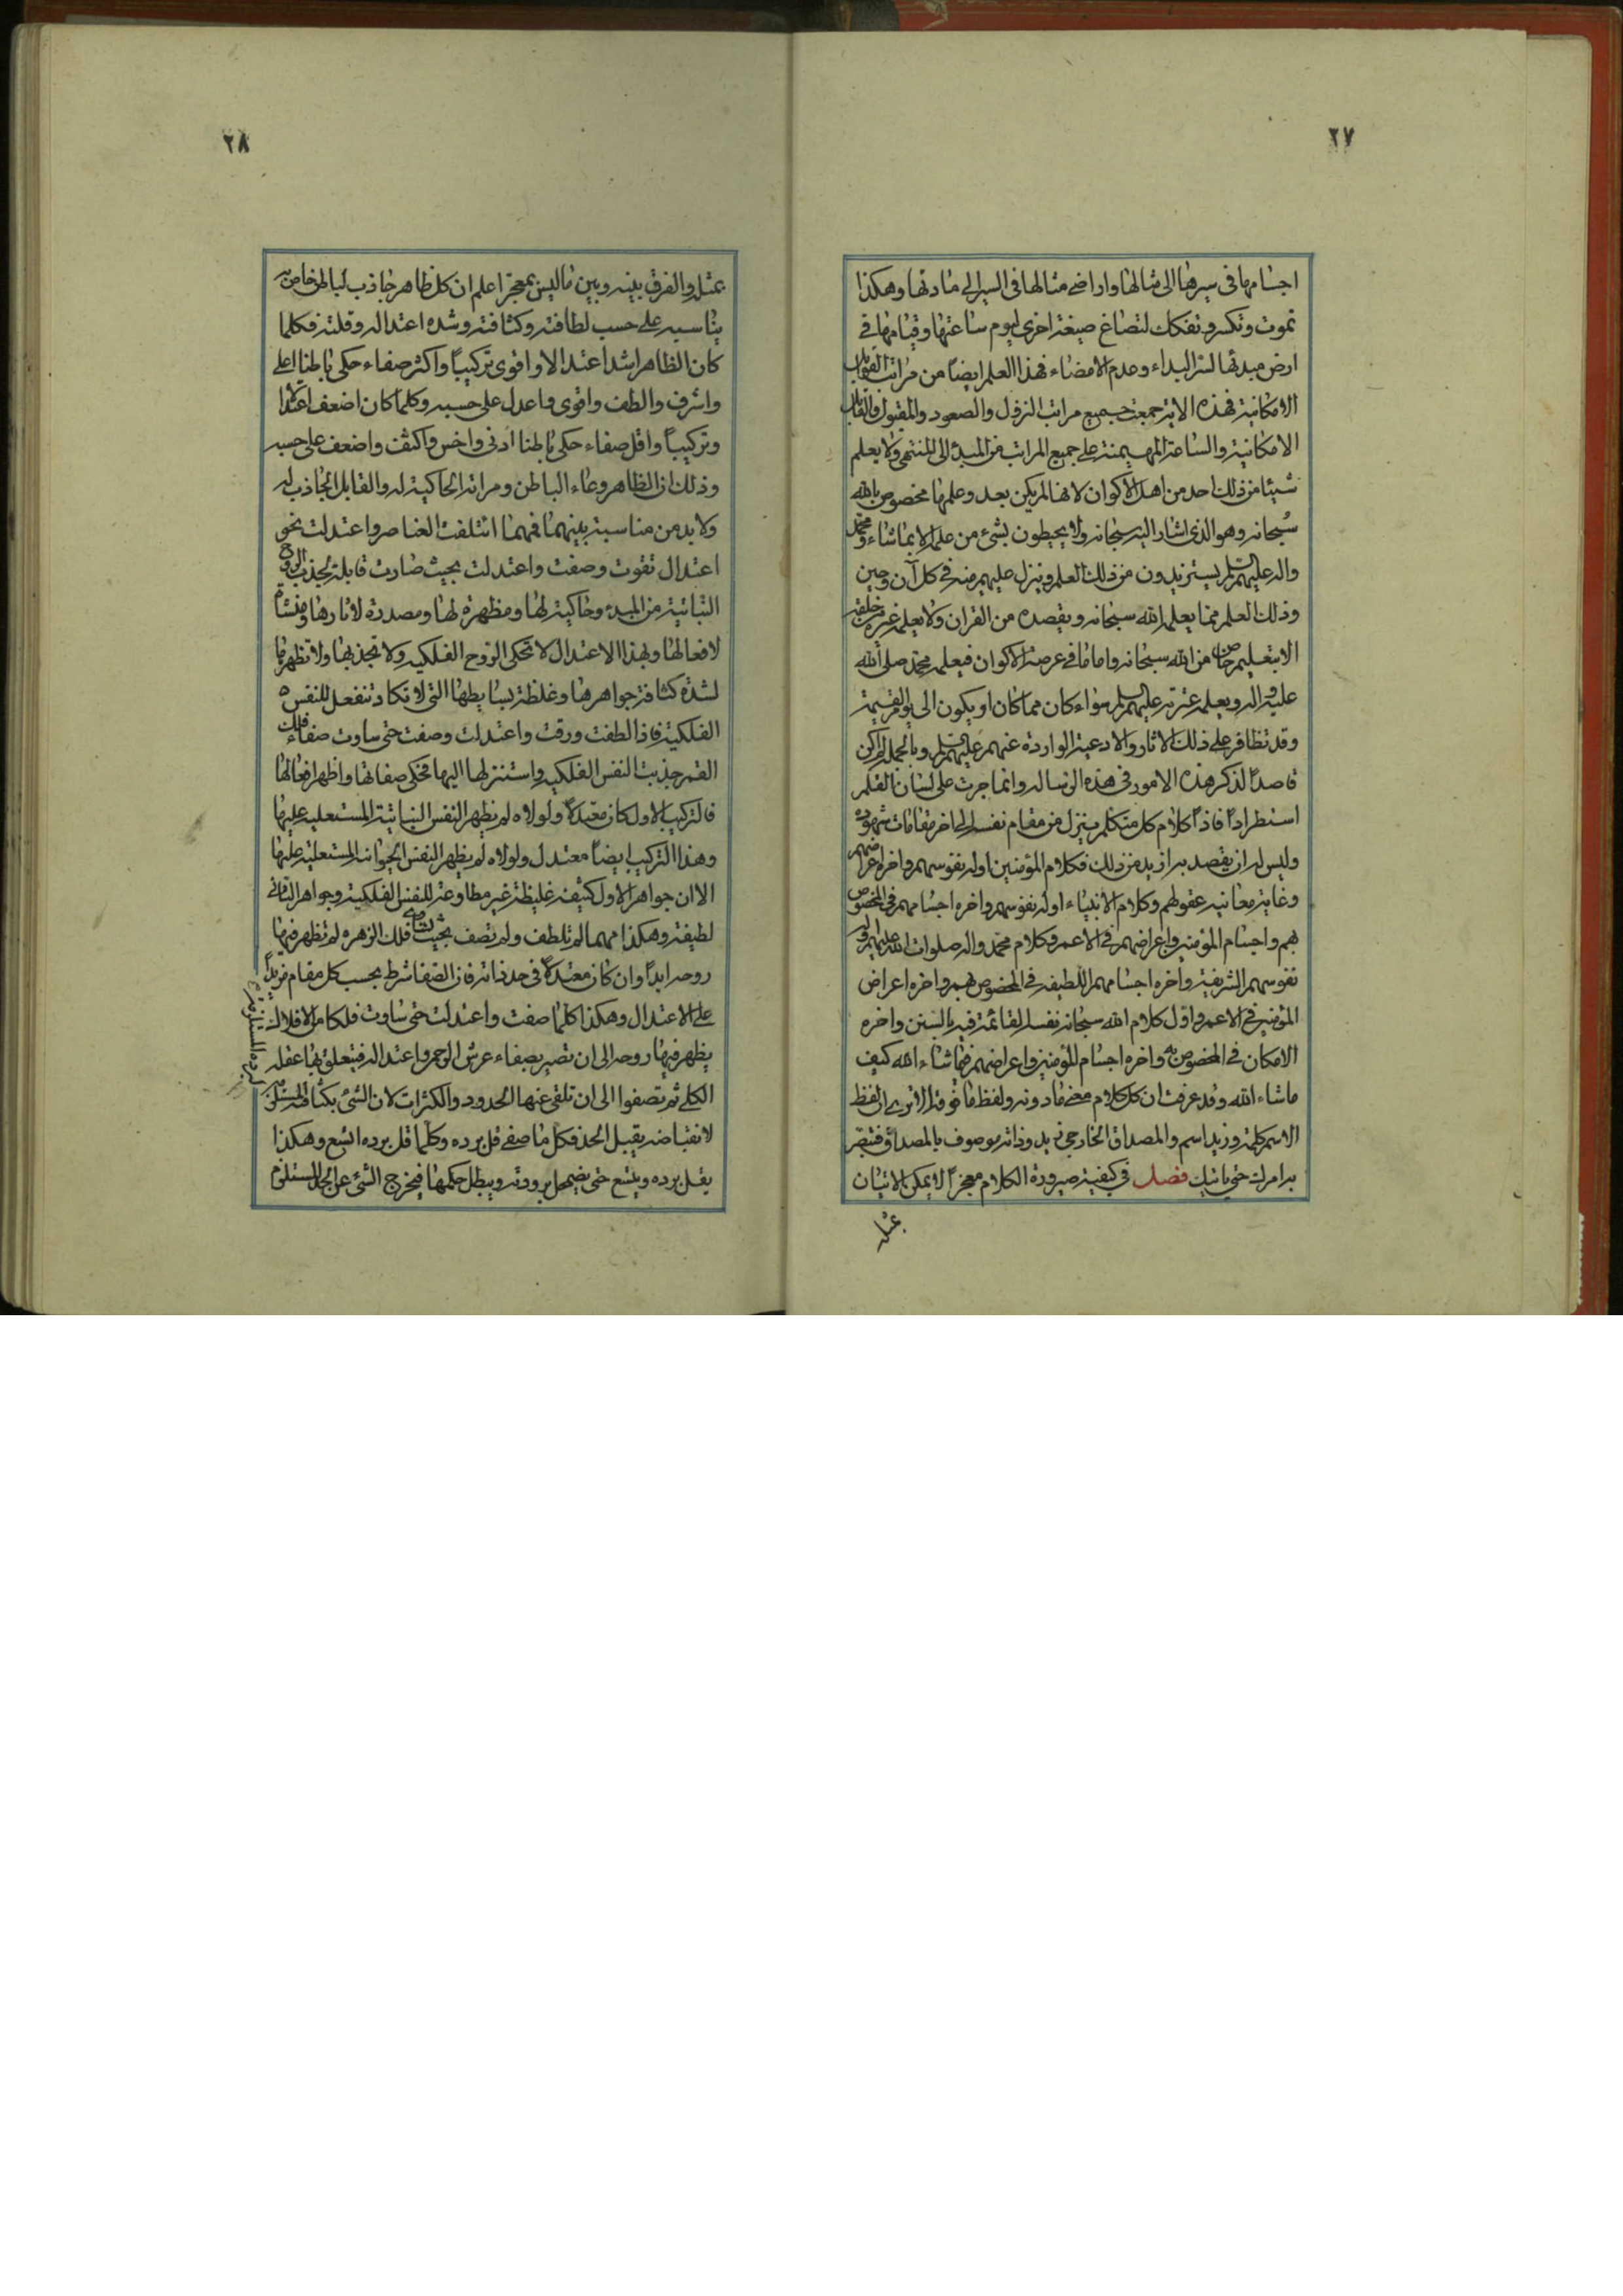 ٢٧
اجسامها فى سيرها الى مثالها واراضى مثالها فى السير الى مادتها وهكذا
تموت وتكسر وتفكك لتصاغ صيغة اخرى ليوم ساعتها وقيامها فى
ارض مبدئها لسر البداء وعدم الامضاء فهذا العلم ايضاً من مراتب القوابل
الامكانية فهذه الاية جمعت جميع مراتب النزول والصعود والمقبول والقابل
الامكانية والساعة المهيمنة على جميع المراتب من المبدأ الى المنتهى ولا يعلم
شيئا من ذلك احد من اهل الاكوان لانها لم يكن بعد وعلمها مخصوص بالله
سبحانه وهو الذى اشار اليه سبحانه ولا يحيطون بشئ من علمه الا بما شاء ومحمد
واله عليهم السلم يستزيدون من ذلك العلم وينزل عليهم منه فى كل آن وحين
وذلك العلم مما يعلمه الله سبحانه ويقصده من القران ولا يعلم غيره من خلقه
الا بتعليم خاص من الله سبحانه واما ما فى عرصة الاكوان فيعلمه محمد صلى الله
عليه واله ويعلمه عترته عليهم السلم سواء كان مما كان او يكون الى يوم القيمة
وقد تظافر على ذلك الاثار والادعية الواردة عنهم عليهم السلم وبالجملة لم اكن
قاصداً لذكر هذه الامور فى هذه الرسالة وانما جرت على لسان القلم
استطراداً فاذاً كلام كل متكلم ينزل من مقام نفسه الى اخر مقامات شهوده
وليس له ان يقصد به ازيد من ذلك فكلام المؤمنين اوله نفوسهم واخره اعراضهم
وغاية معانيه عقولهم وكلام الانبياء اوله نفوسهم واخره اجسامهم فى المخصوص
بهم واجسام المؤمنين واعراضهم فى الاعم وكلام محمد واله صلوات الله عليهم اوله
نفوسهم الشريفة واخره اجسامهم اللطيفة فى المخصوص بهم واخره اعراض
المؤمنين فى الاعم واول كلام الله سبحانه نفسه القائمة فيه بالسنن واخره
الامكان فى المخصوص به واخره اجسام المؤمنين واعراضهم فيما شاء الله كيف
ماشاء الله وقد عرفت ان كل كلام معنى مادونه ولفظ ما فوقه الا ترى ان لفظ
الاسم كلمة وزيد اسم والمصداق الخارجى زيد وذاته موصوف بالمصداق فتبصر
برامرك حتى ياتيك فصل فى كيفية صيرورة الكلام معجزاً لا يمكن الاتيان
بمثله
٢٨
بمثله والفرق بينه وبين ماليس بمعجز اعلم ان كل ظاهر جاذب لباطن خاص به
يناسبه على حسب لطافته وكثافته وشدة اعتداله وقلته فكلما
كان الظاهر اشد اعتدالا واقوى تركيباً واكثر صفاء حكى باطنا اعلى
واشرف والطف واقوى واعدل على حسبه وكلما كان اضعف اعتدالا
وتركيباً واقل صفاء حكى باطنا ادنى واخس واكثف واضعف على حسبه
وذلك ان الظاهر وعاء الباطن ومراته الحاكية له والقابل الجاذب له
ولابد من مناسبة بينهما فمهما ائتلفت العناصر واعتدلت نحو
اعتدال تقوت وصفت واعتدلت بحيث صارت قابلة لجذب الروح
النباتية من المبدء وحاكية لها ومظهرة لها ومصدرة لاثارها ومنشأ
لافعالها وبهذا الاعتدال لا تحكى الروح الفلكية ولا تجذبها ولا تظهرها
لشدة كثافة جواهرها وغلظة بسايطها التى لا تكاد تنفعل للنفس
الفلكية فاذا لطفت ورقت واعتدلت وصفت حتى ساوت صفاء فلك
القمر جذبت النفس الفلكية واستنزلها اليها فحكى صفاتها واظهر افعالها
فالتركيب الاول كان معتدلاً ولولاه لم تظهر النفس النباتية المستعلية عليها
وهذا التركيب ايضاً معتدل ولولاه لم يظهر النفس الحيوانية المستعلية عليها
الا ان جواهر الاول كثيفة غليظة غير مطاوعة للنفس الفلكية وجواهر الثانى
لطيفة وهكذا مهما لم تلطف ولم تصف بحيث تضاهى فلك الزهره لم تظهر فيها
روحه ابداً وان كان معتدلاً فى حد ذاته فان الصفا شرط بحسب كل مقام مزيداً
على الاعتدال وهكذا كلما صفت واعتدلت حتى ساوت فلكا من الافلاك
يظهر فيها روحه الى ان تصير بصفاء عرش الروح واعتداله فيتعلق بها عقله
الكلى ثم تصفوا الى ان تلقى عنها الحدود والكثرات لان الشئ بكثافته المستلزمة
لانقباضه يقبل الحد فكل ما صفى قل برده وكلما قل برده اتسع وهكذا
يقل برده ويتسع حتى يضمحل برودته ويبطل حكمها فيخرج الشئ عن الحد المستلزم